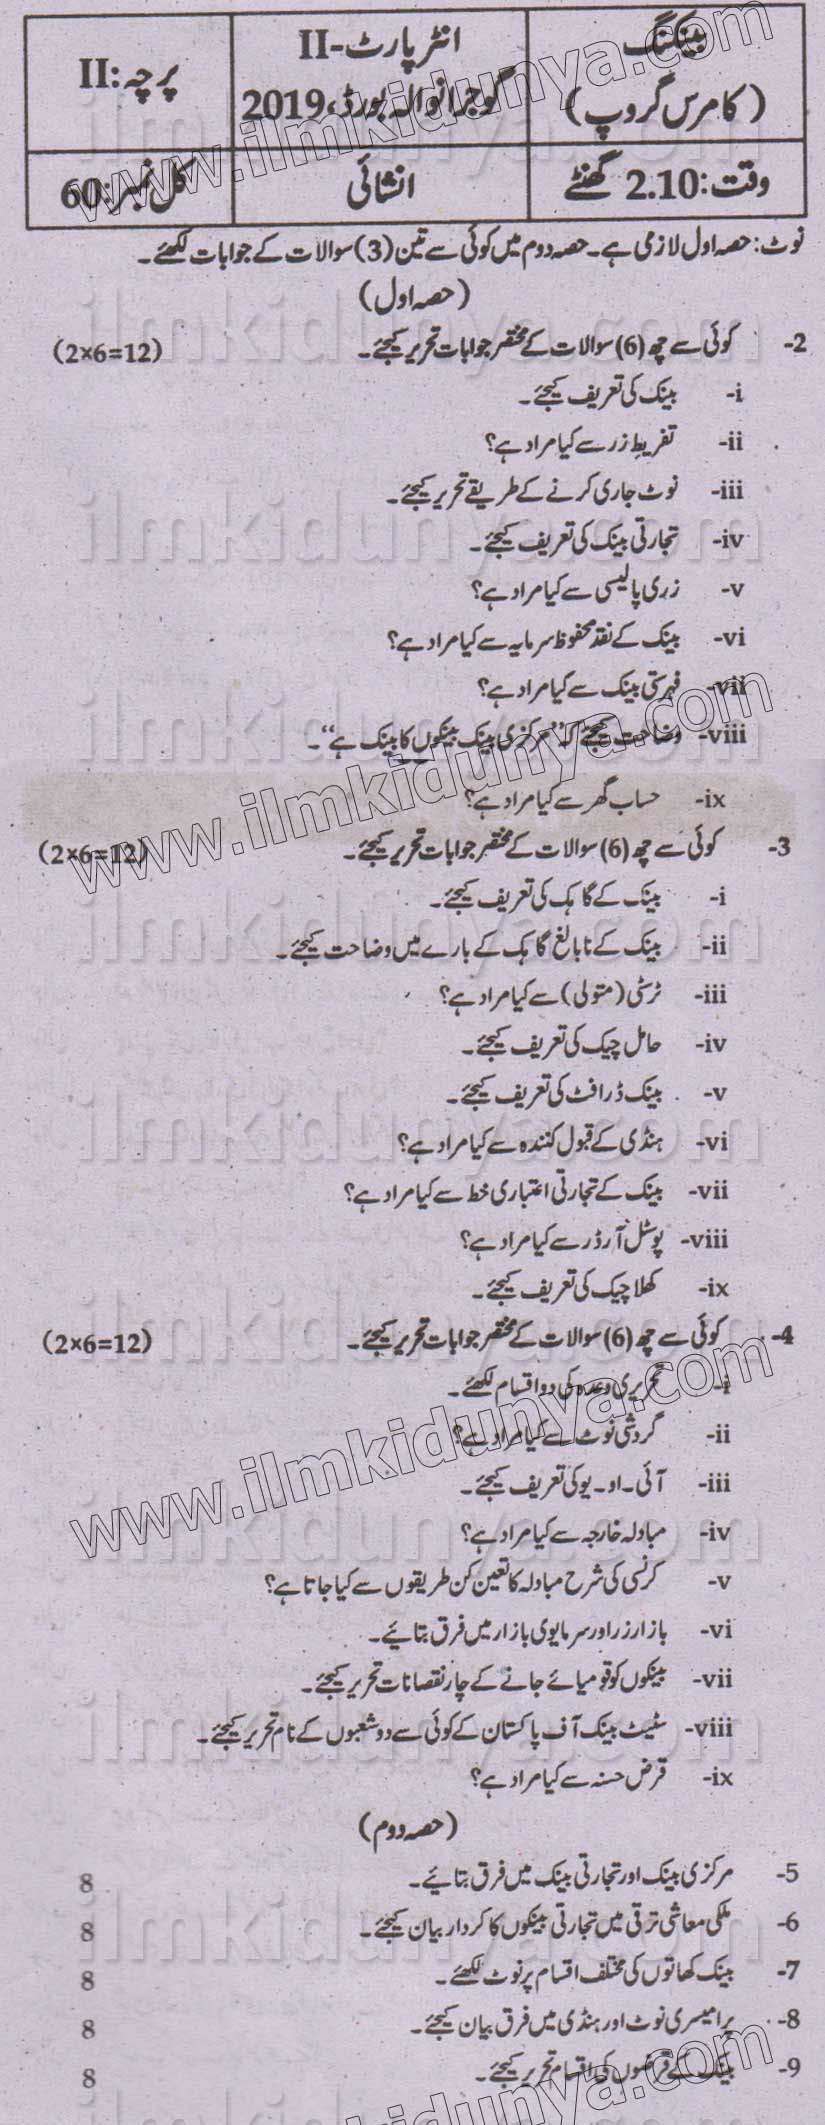 بینکنگ
(کامرس گروپ)
انٹر پارٹ-II
گوجرانوالہ بورڈ، 2019
پرچہ: II
وقت: 2.10 گھنٹے
انشائی
کل نمبر: 60
نوٹ: حصہ اول لازمی ہے۔ حصہ دوم میں کوئی سے تین (3) سوالات کے جوابات لکھئے۔
(حصہ اول)
2- کوئی سے چھ (6) سوالات کے مختصر جوابات تحریر کیجئے۔ (2×6=12)
i- بینک کی تعریف کیجئے۔
ii- تفریطِ زر سے کیا مراد ہے؟
iii- نوٹ جاری کرنے کے طریقے تحریر کیجئے۔
iv- تجارتی بینک کی تعریف کیجئے۔
v- زری پالیسی سے کیا مراد ہے؟
vi- بینک کے نقد محفوظ سرمایہ سے کیا مراد ہے؟
vii- فہرستی بینک سے کیا مراد ہے؟
viii- وضاحت کیجئے کہ "مرکزی بینک بینکوں کا بینک ہے"۔
ix- حساب گھر سے کیا مراد ہے؟
3- کوئی سے چھ (6) سوالات کے مختصر جوابات تحریر کیجئے۔ (2×6=12)
i- بینک کے گاہک کی تعریف کیجئے۔
ii- بینک کے نابالغ گاہک کے بارے میں وضاحت کیجئے۔
iii- ٹرسٹی (متولی) سے کیا مراد ہے؟
iv- حامل چیک کی تعریف کیجئے۔
v- بینک ڈرافٹ کی تعریف کیجئے۔
vi- ہنڈی کے قبول کنندہ سے کیا مراد ہے؟
vii- بینک کے تجارتی اعتباری خط سے کیا مراد ہے؟
viii- پوسٹل آرڈر سے کیا مراد ہے؟
ix- کھلا چیک کی تعریف کیجئے۔
4- کوئی سے چھ (6) سوالات کے مختصر جوابات تحریر کیجئے۔ (2×6=12)
i- تحریری وعدہ کی دو اقسام لکھئے۔
ii- گردشی نوٹ سے کیا مراد ہے؟
iii- آئی۔او۔یو کی تعریف کیجئے۔
iv- مبادلہ خارجہ سے کیا مراد ہے؟
v- کرنسی کی شرح مبادلہ کا تعین کن طریقوں سے کیا جاتا ہے؟
vi- بازار زر اور سرمایوی بازار میں فرق بتائیے۔
vii- بینکوں کو قومیائے جانے کے چار نقصانات تحریر کیجئے۔
viii- سٹیٹ بینک آف پاکستان کے کوئی سے دو شعبوں کے نام تحریر کیجئے۔
ix- قرض حسنہ سے کیا مراد ہے؟
(حصہ دوم)
5- مرکزی بینک اور تجارتی بینک میں فرق بتائیے۔ 8
6- ملکی معاشی ترقی میں تجارتی بینکوں کا کردار بیان کیجئے۔ 8
7- بینک کھاتوں کی مختلف اقسام پر نوٹ لکھئے۔ 8
8- پرامیسری نوٹ اور ہنڈی میں فرق بیان کیجئے۔ 8
9- بینک کے قرضوں کی اقسام تحریر کیجئے۔ 8
www.ilmkidunya.com